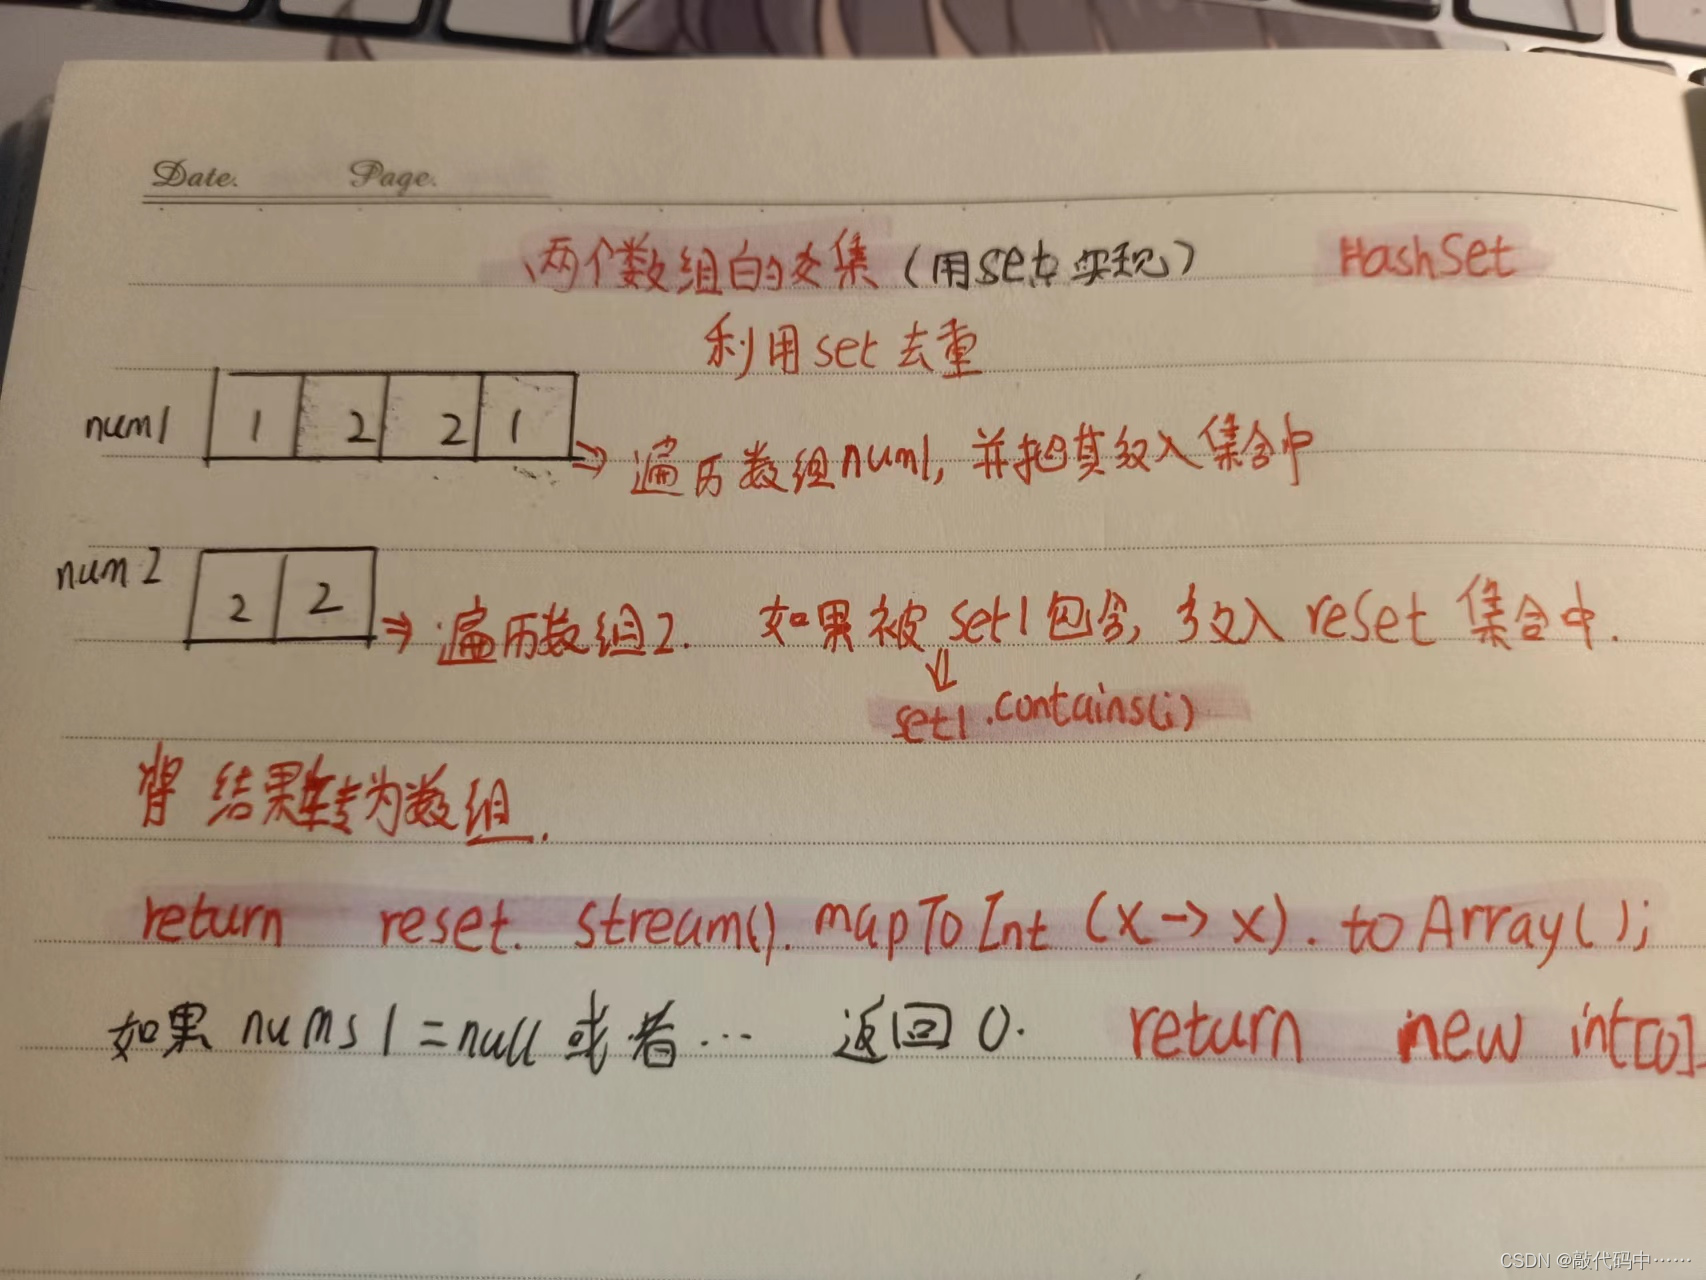 Date. Page.
两个数组的交集（用set实现） HashSet
利用set去重
num1 1 2 2 1
遍历数组num1, 并把其放入集合中
num2 2 2
遍历数组2. 如果被set1包含, 放入reset集合中.
set1.contains(i)
将结果转为数组.
return reset. stream(). mapToInt (x->x). toArray();
如果 nums1=null 或者… 返回0. return new int[0]
CSDN @敲代码中……